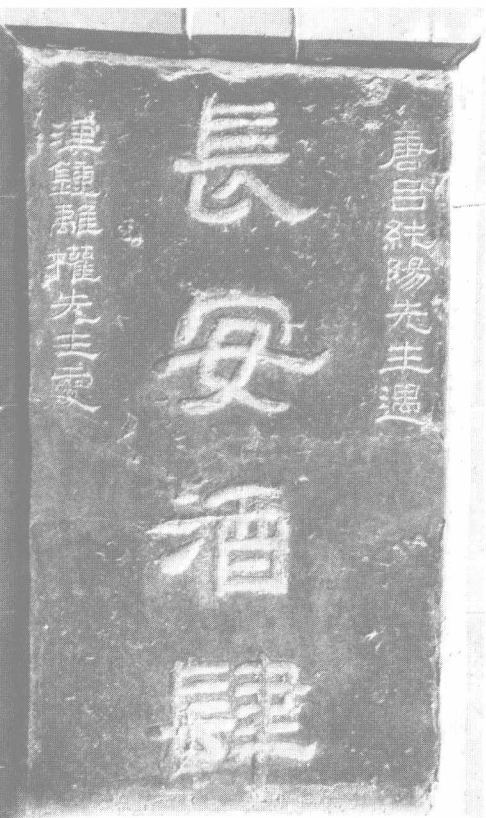 唐呂純陽先生遇
長安酒肆
漢鍾離權先生處